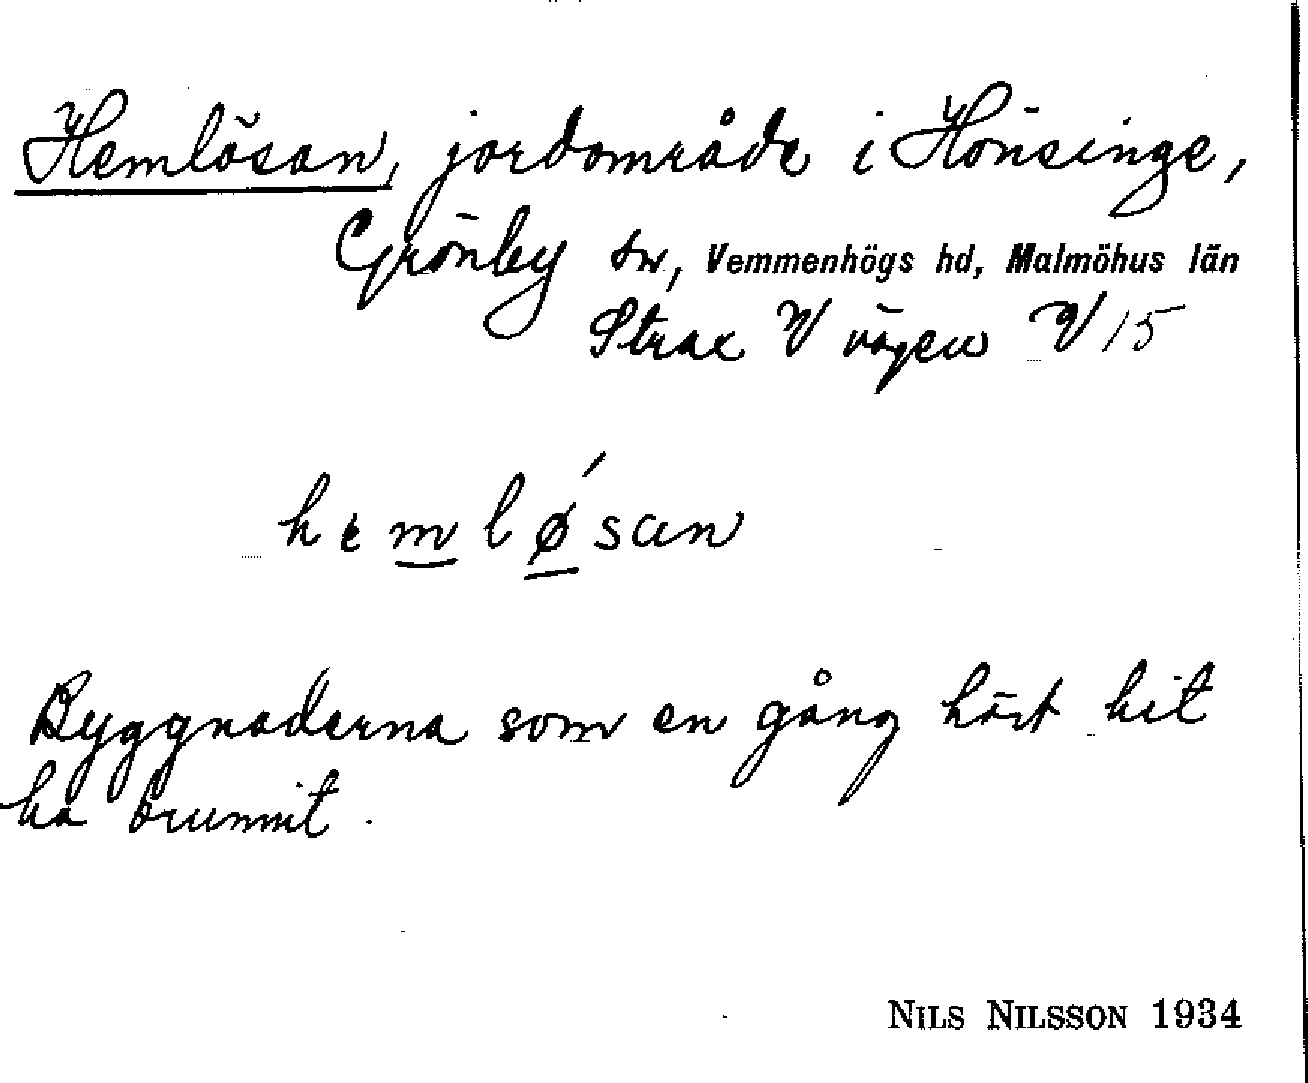 Hemlösan, jordområde i Hönsinge,
Grönby sn, Vemmenhögs hd, Malmöhus län
Strax V vägen V/15
hemløsan
Byggnaderna som en gång hört hit
ha brunnit.
NILS NILSSON 1934